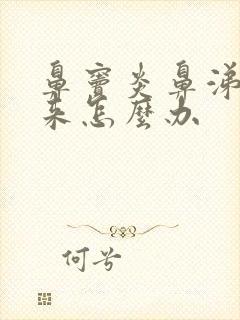 鼻窦炎鼻涕
来怎麼办
何兮